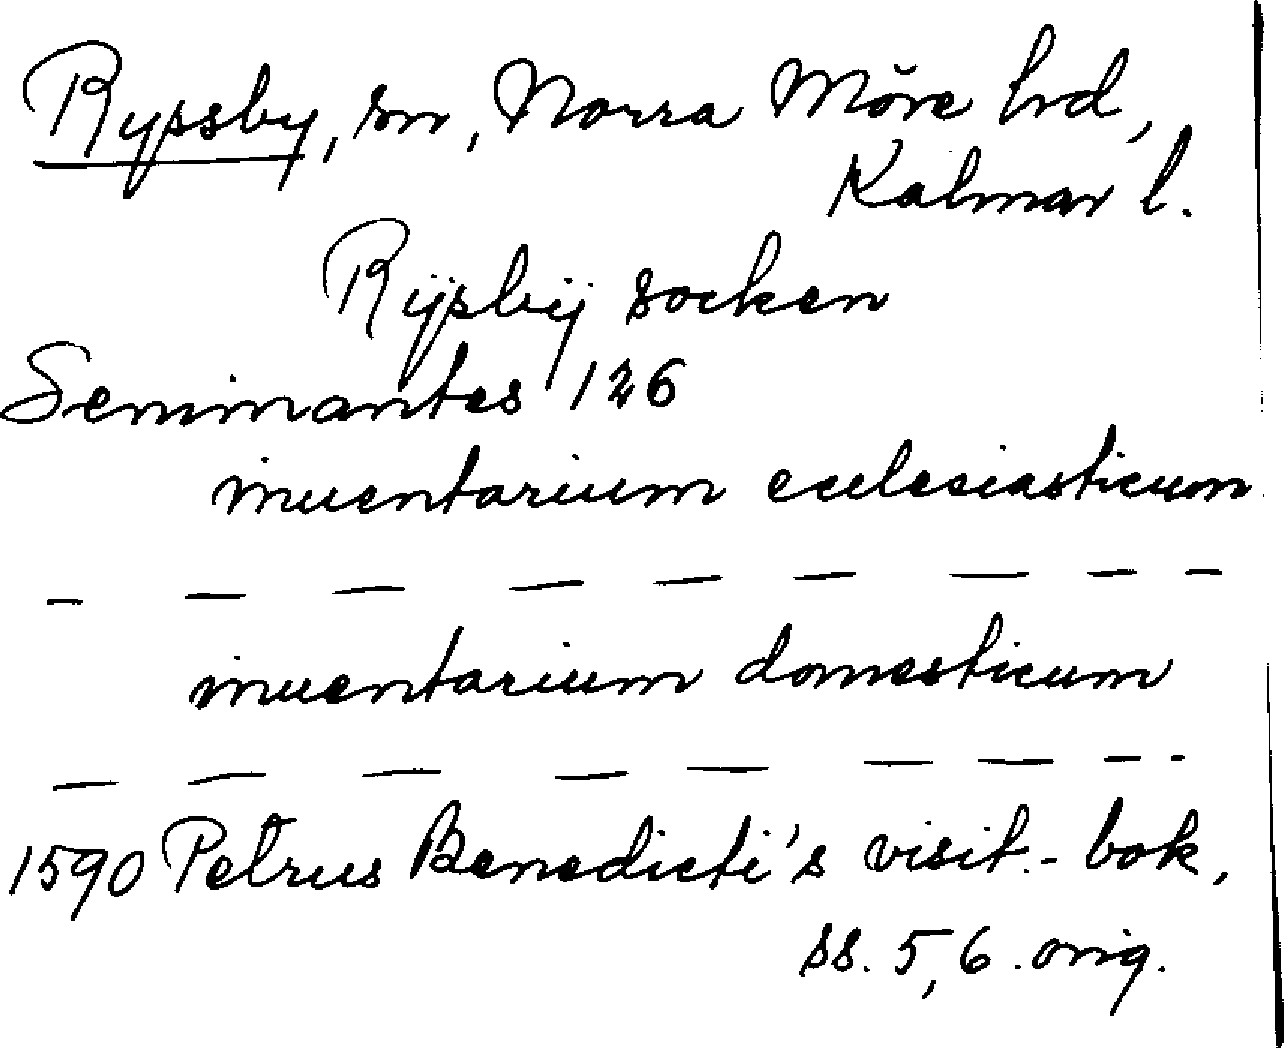 Ryssby, sn, Norra Möre hrd,
Kalmar l.
Rÿsbÿ socken
Seminantes 126
inuentarium ecclesiasticum
— — — — — — — — —
inuentarium domesticum
— — — — — — — — —
1590 Petrus Benedicti's visit.-bok,
ss. 5, 6. orig.